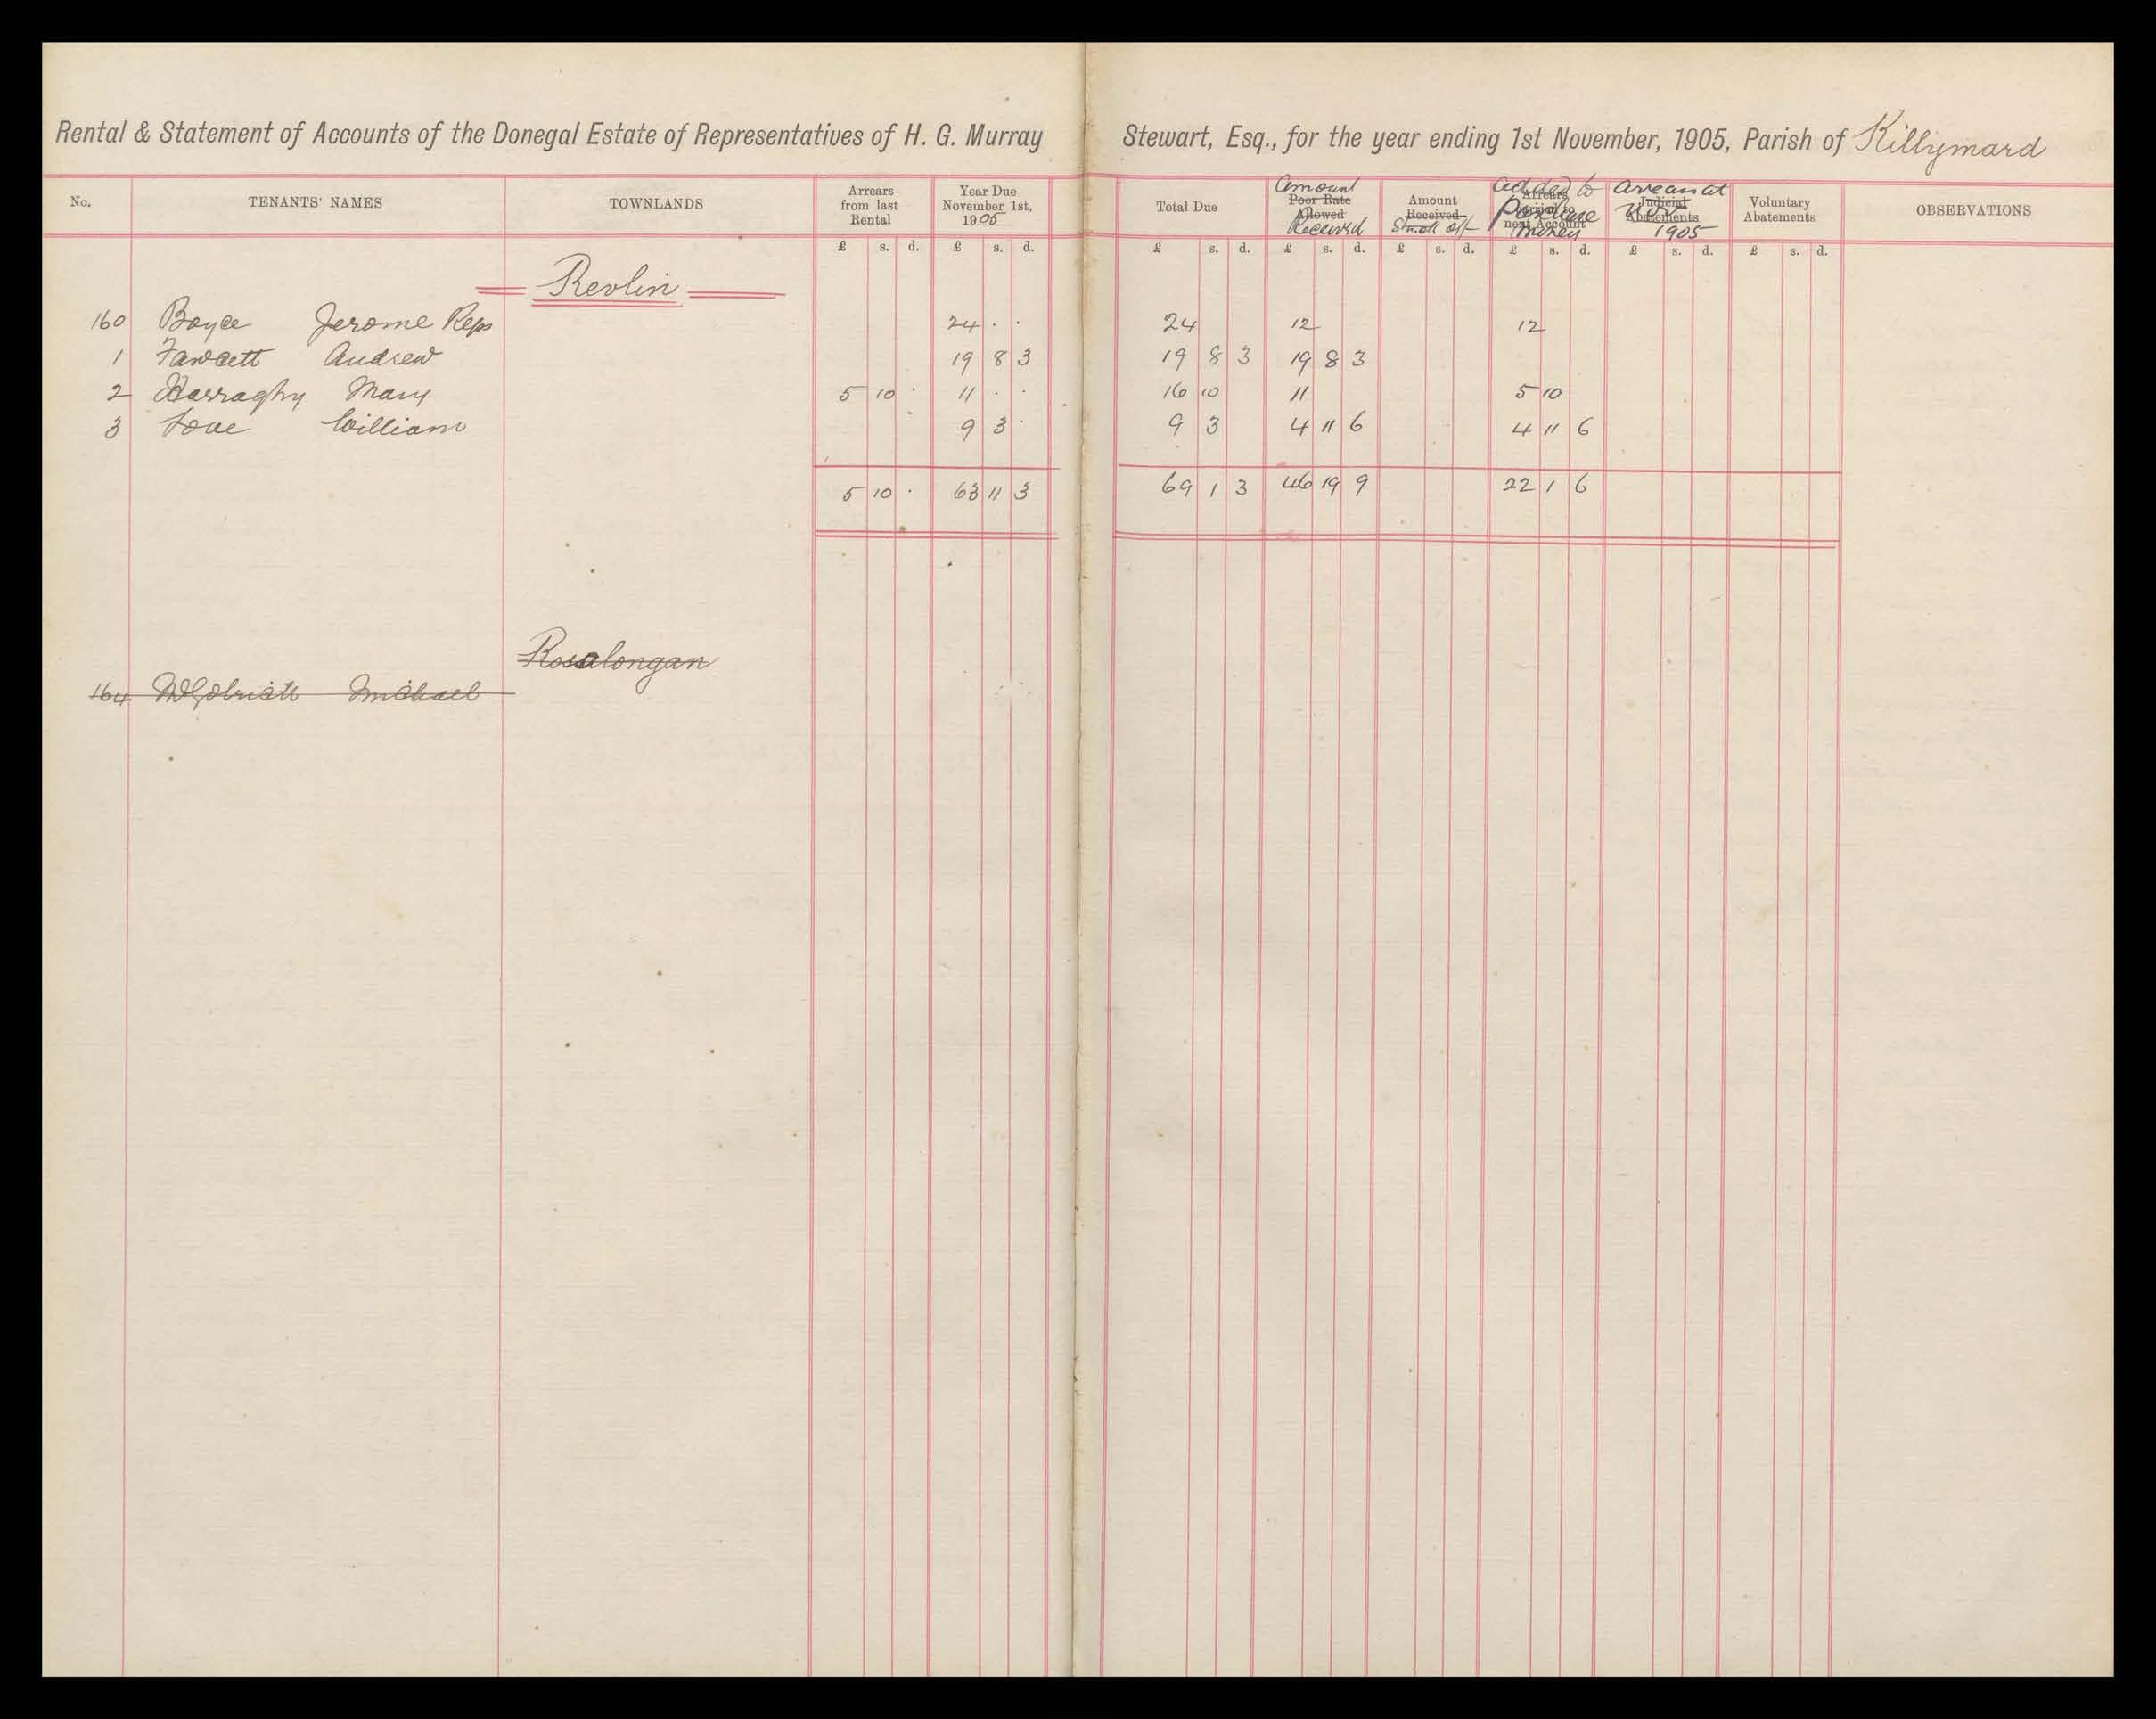 Rental & Statement of Accounts of the Donegal Estate of Representatives of H. G. Murray Stewart, Esq., for the year ending 1st November, 1905, Parish of Killymard
No. TENANTS' NAMES TOWNLANDS Arrears from last Rental Year Due November 1st, 1905 Total Due Amount Poor Rate Allowed Received Amount Received Struck off Added to Arrears carried to next Account Purchase Money Arrears at Judicial Abatements Nov 1905 Voluntary Abatements OBSERVATIONS
£ s. d. £ s. d. £ s. d. £ s. d. £ s. d. £ s. d. £ s. d. £ s. d.
Revlin
160 Boyce Jerome Reps 24 . . 24 12 12
1 Fawcett Andrew 19 8 3 19 8 3 19 8 3
2 Harraghy Mary 5 10 . 11 . . 16 10 11 5 10
3 Love William 9 3 . 9 3 4 11 6 4 11 6
5 10 . 63 11 3 69 1 3 46 19 9 22 1 6
Rossalongan
164 Michael